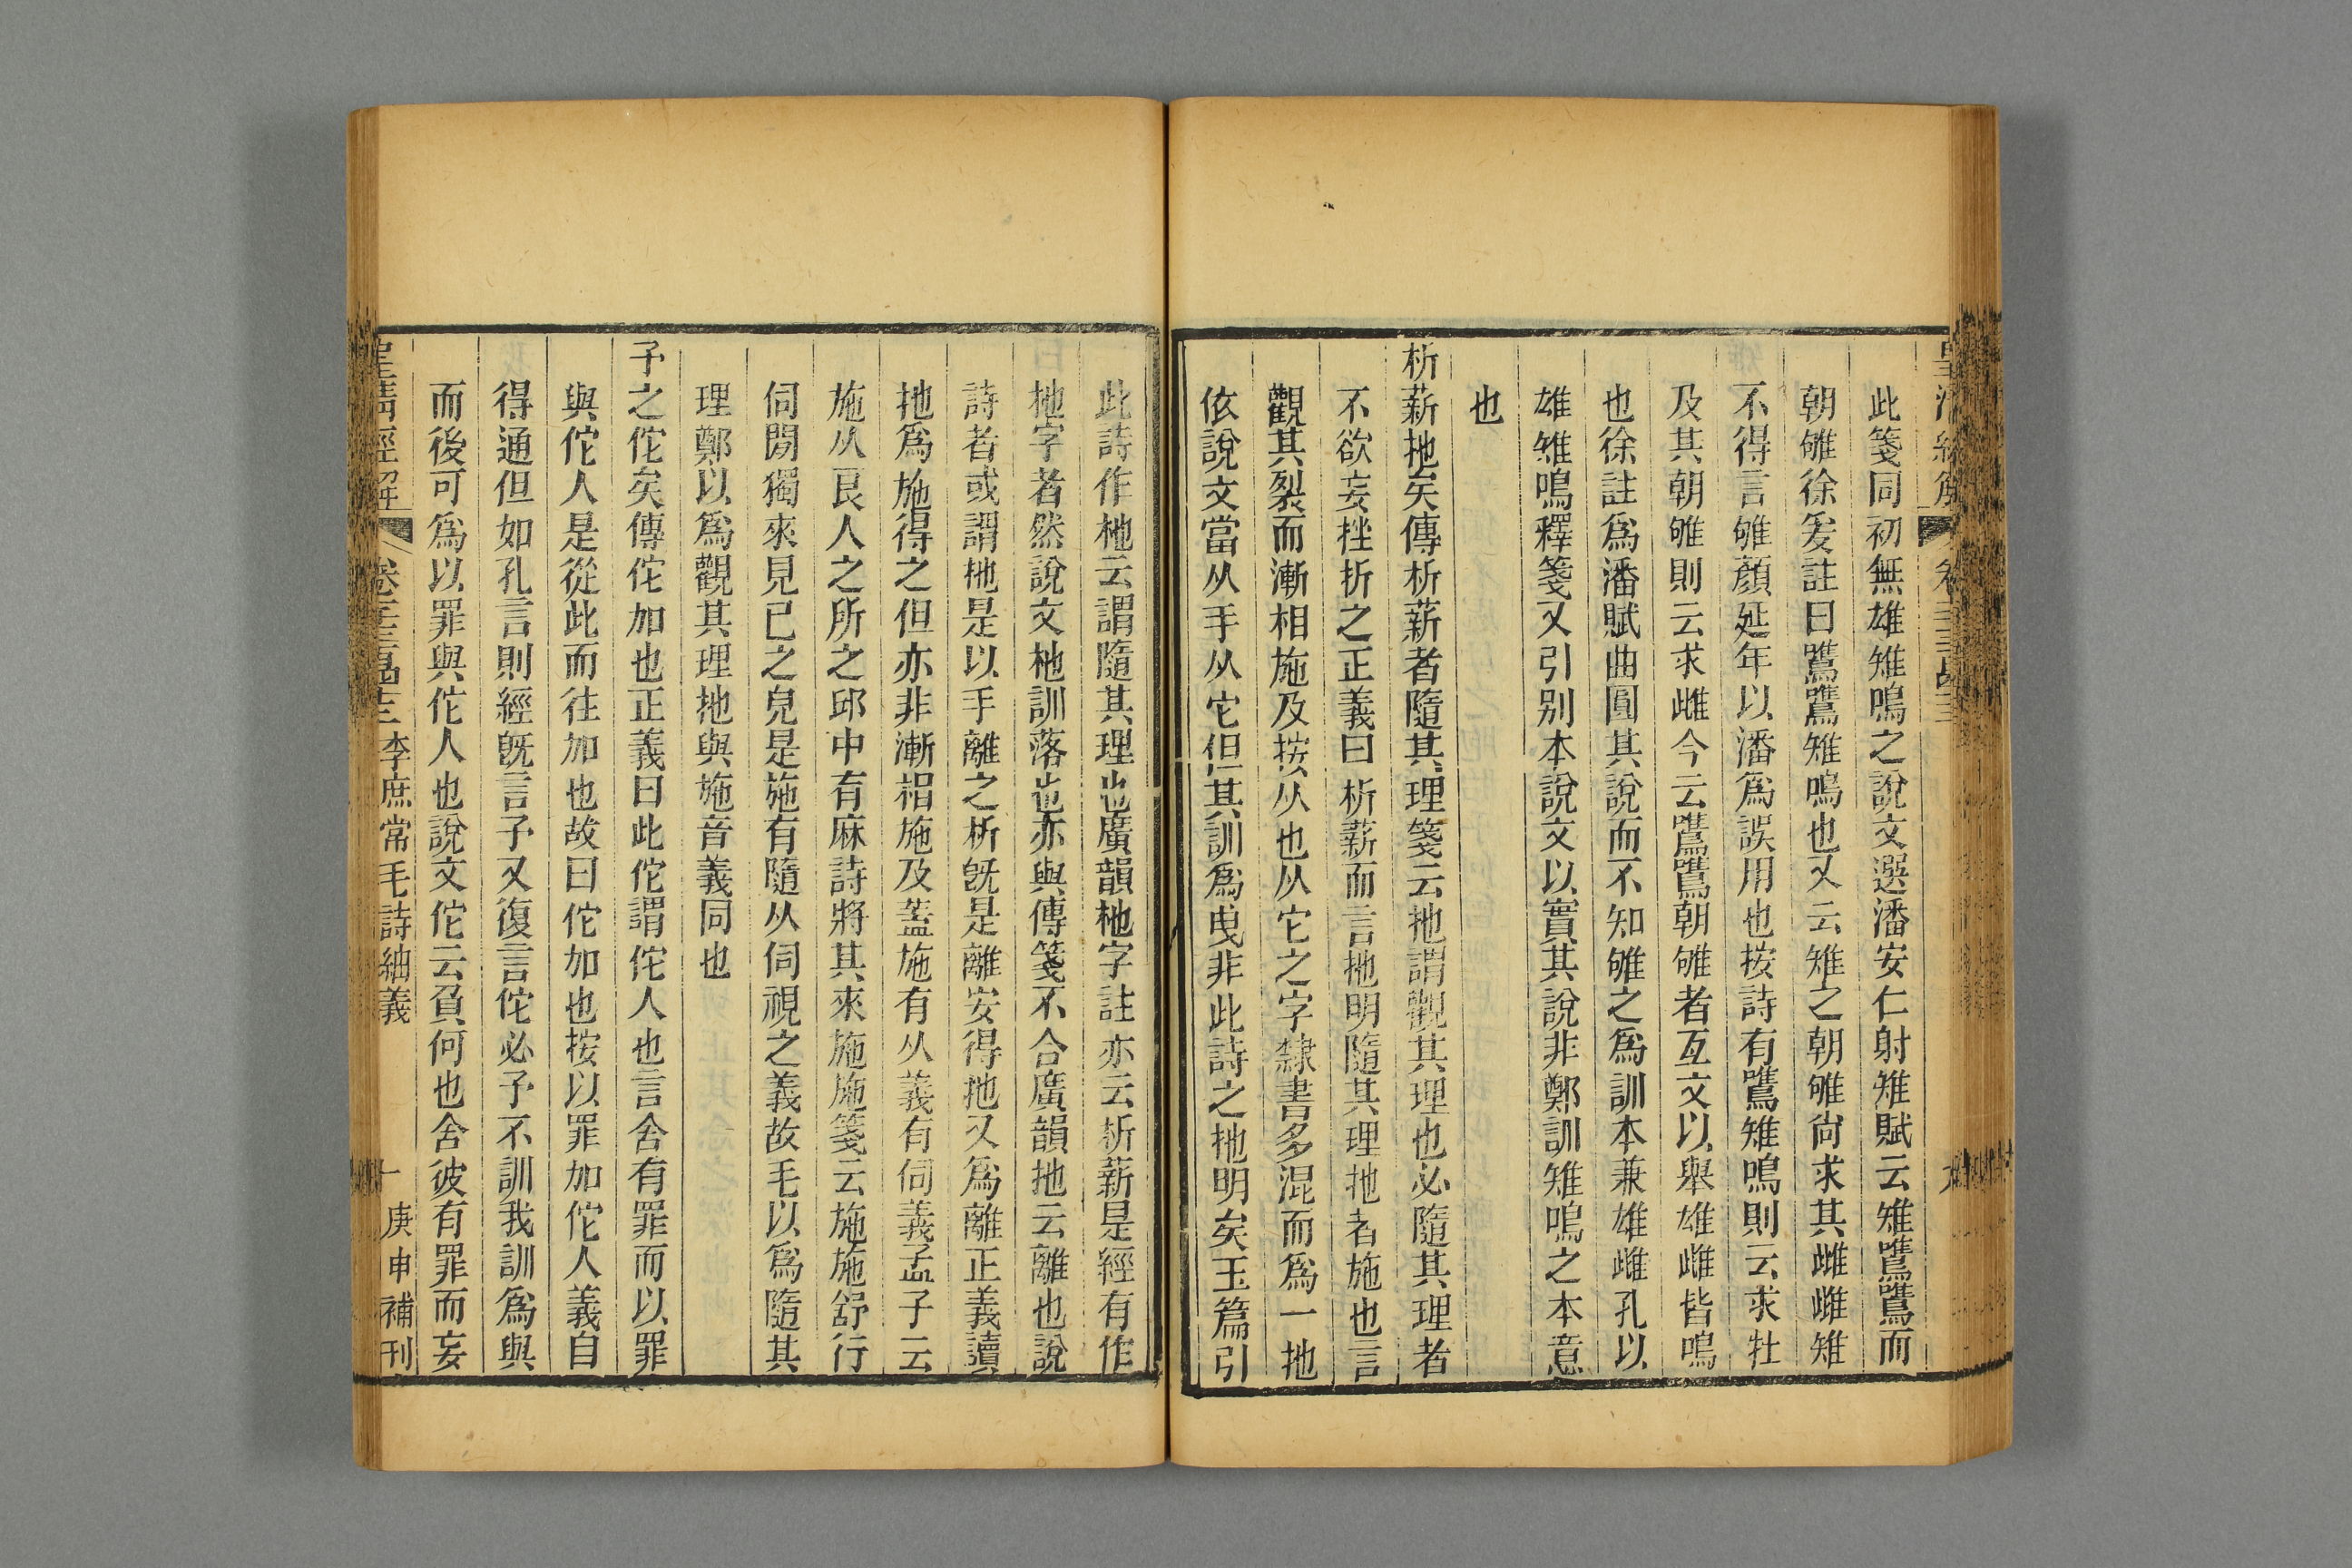 此箋同初無雄雉鳴之說文選潘安仁射雉賦云雉鷕鷕而
朝雊徐爰註曰鷕鷕雉鳴也又云雉之朝雊尙求其雌雌雉
不得言雊顏延年以潘爲誤用也按詩有鷕雉鳴則云求牡
及其朝雊則云求雌今云鷕鷕朝雊者互文以舉雄雌皆鳴
也徐註爲潘賦曲圓其說而不知雊之爲訓本兼雄雌孔以
雄雉鳴釋箋又引别本說文以實其說非鄭訓雉鳴之本意
也
析薪扡矣傳析薪者隨其理箋云扡謂觀其理也必隨其理者
不欲妄挫折之正義曰析薪而言扡明隨其理扡者施也言
觀其裂而漸相施及按从也从它之字隸書多混而爲一扡
依說文當从手从它但其訓爲曳非此詩之扡明矣玉篇引
此詩作杝云謂隨其理也廣韻杝字註亦云析薪是經有作
杝字者然說文杝訓落也亦與傳箋不合廣韻扡云離也說
詩者或謂杝是以手離之析旣是離安得扡又爲離正義讀
扡爲施得之但亦非漸相施及葢施有从義有伺義孟子云
施从良人之所之邱中有麻詩將其來施施箋云施施舒行
伺閒獨來見已之皃是施有隨从伺視之義故毛以爲隨其
理鄭以爲觀其理扡與施音義同也
予之佗矣傳佗加也正義曰此佗謂佗人也言舍有罪而以罪
與佗人是從此而往加也故曰佗加也按以罪加佗人義自
得通但如孔言則經旣言予又復言佗必予不訓我訓爲與
而後可爲以罪與佗人也說文佗云負何也舍彼有罪而妄
皇淸經解 李庶常毛詩紬義 十 庚申補刊